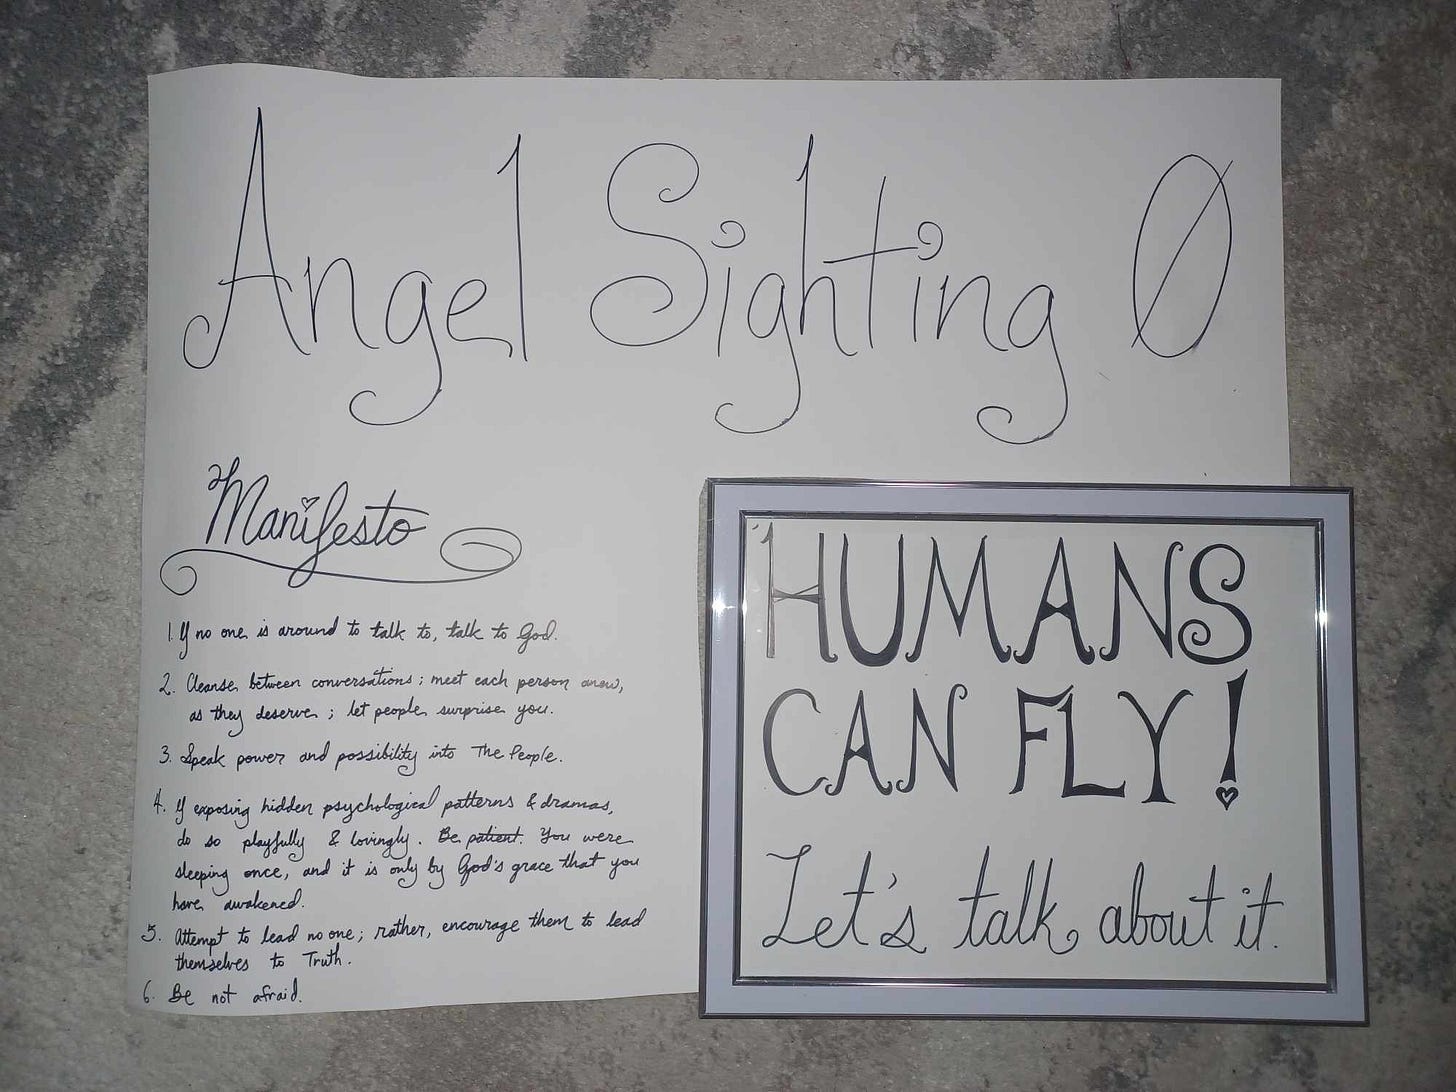 Angel Sighting 0
Manifesto
1. If no one is around to talk to, talk to God.
2. Cleanse between conversations; meet each person anew,
as they deserve; let people surprise you.
3. Speak power and possibility into The People.
4. If exposing hidden psychological patterns & dramas,
do so playfully & lovingly. Be patient. You were
sleeping once, and it is only by God's grace that you
have awakened.
5. Attempt to lead no one; rather, encourage them to lead
themselves to Truth.
6. Be not afraid.
HUMANS
CAN FLY!
Let's talk about it.